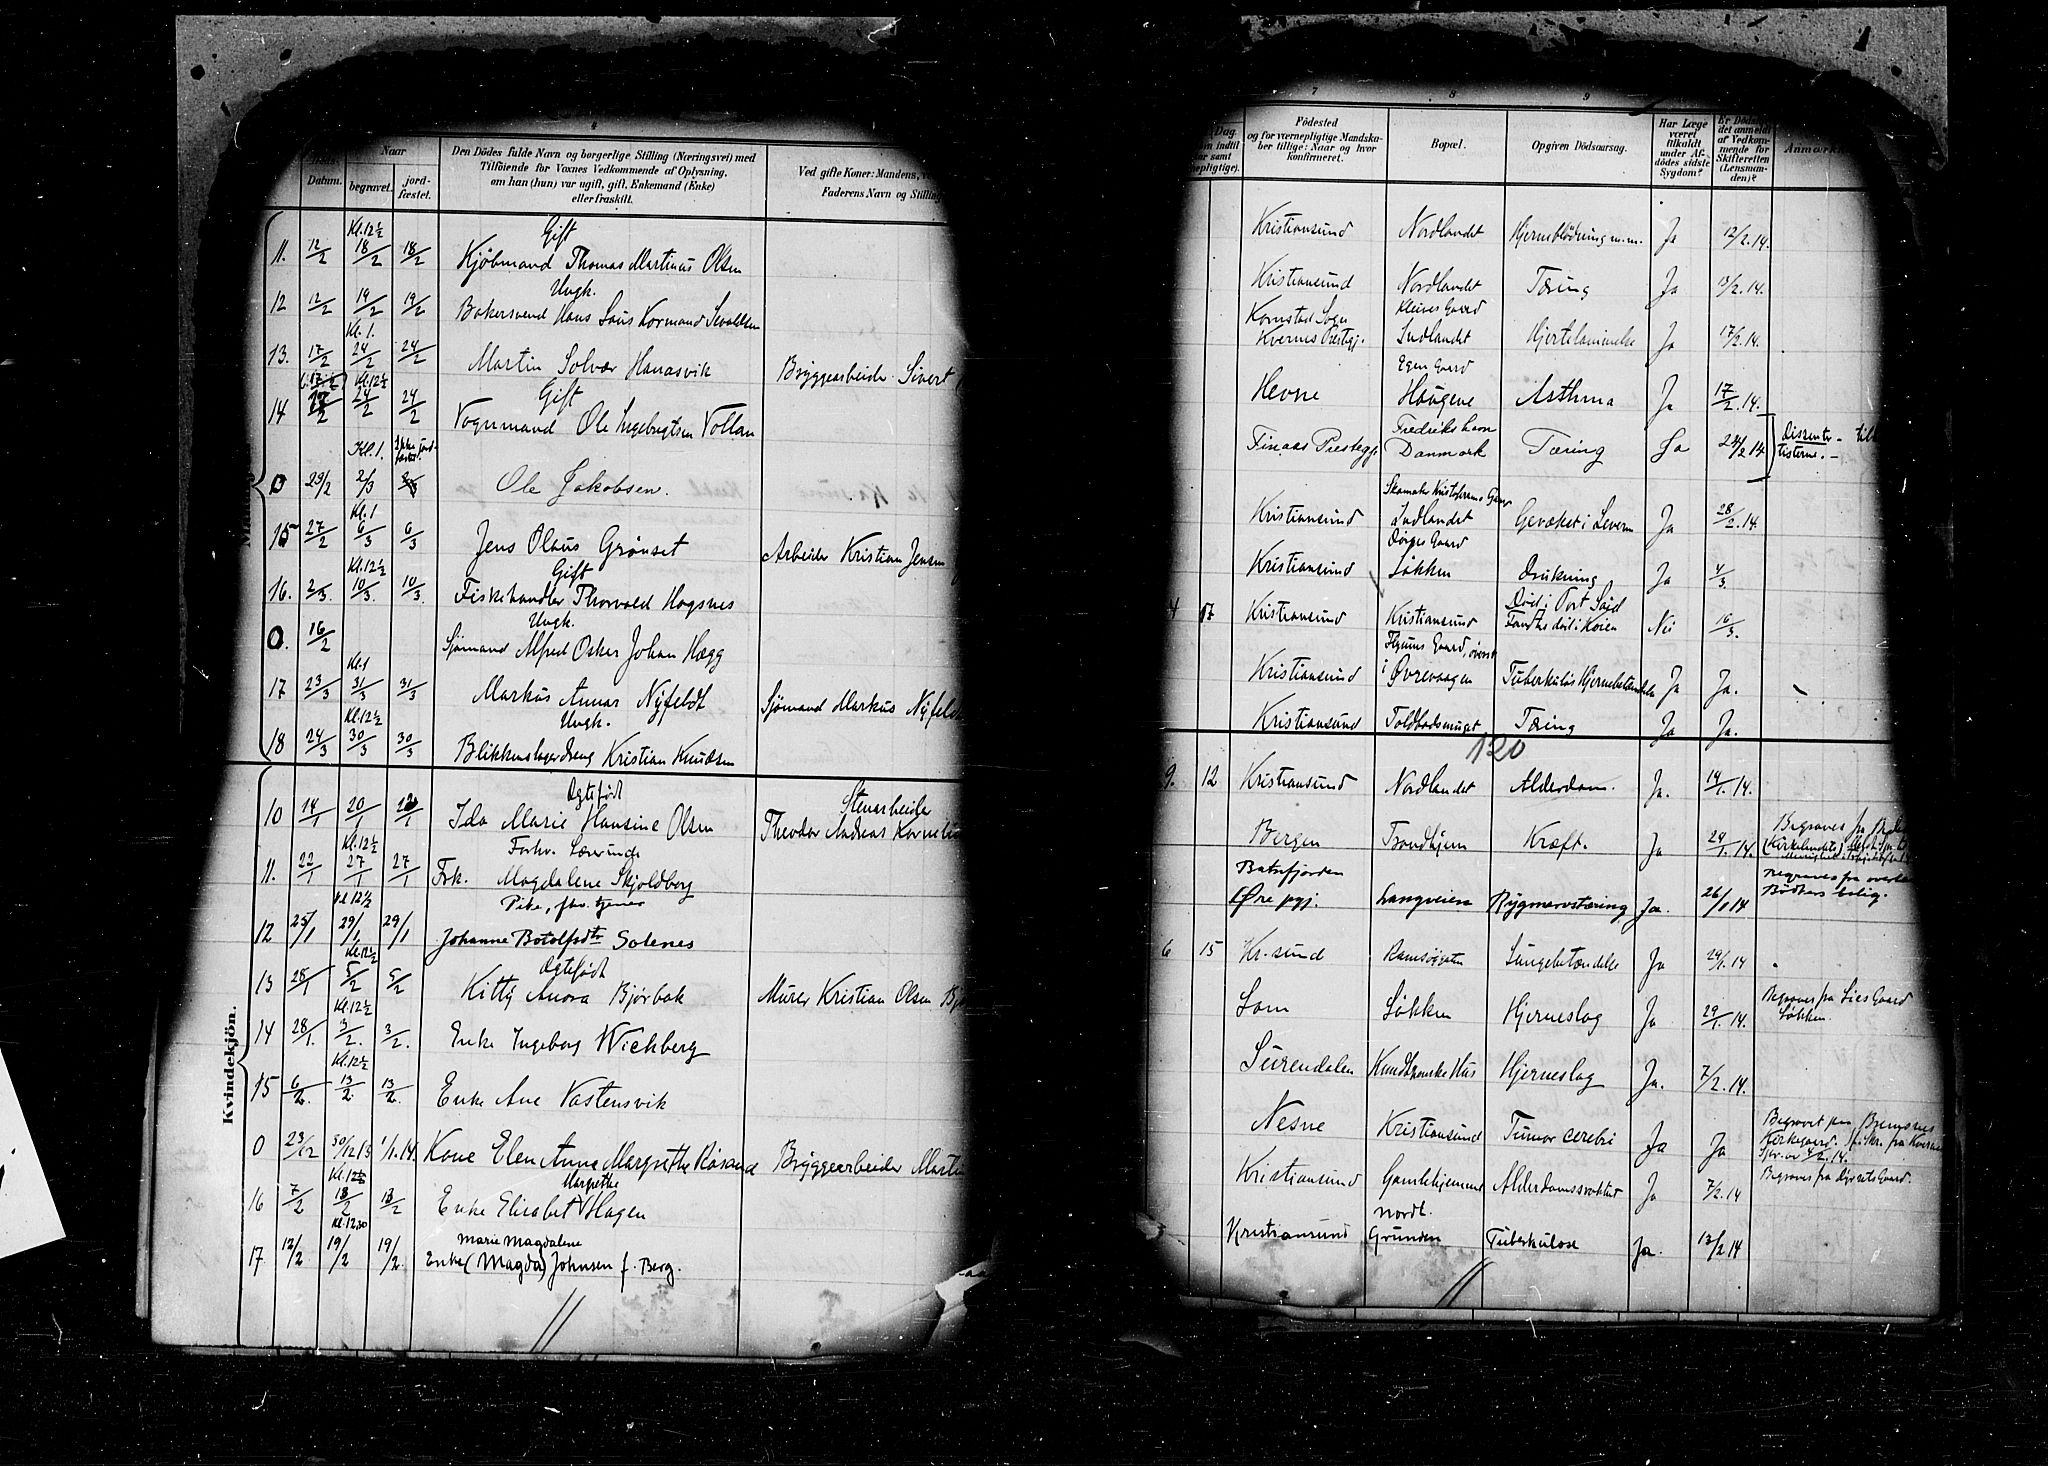 4
Naar
Datum.
begravet.
jord-
fæstet.
Den Dödes fulde Navn og borgerlige Stilling (Næringsvei) med
Tilföiende for Voxnes Vedkommende af Oplysning,
om han (hun) var ugift, gift, Enkemand (Enke)
eller fraskilt.
Ved gifte Koner: Mandens,
Faderens Navn og Stilling
Kl. 12½ Gift
11. 12/2 18/2 18/2 Kjøbmand Thomas Martinus Olsen
Ungk.
12 12/2 19/2 19/2 Bakersvend Hans Laus Kormand Sevaldsen
Kl. 1.
13. 17/2 24/2 24/2 Martin Solvær Hanasvik Bryggearbeider Sivert
Kl. 12½ Gift
14 24/2 24/2 Vognmand Ole Ingebrigtsen Vollan
Kl. 1. Ikke jord-
fæstet
0 23/2 2/3 Ole Jakobsen.
Kl. 1
15 27/2 6/3 6/3 Jens Olaus Grønset Arbeider Kristian Jensen
Kl. 12½ Gift
16. 2/3 10/3 10/3 Fiskehandler Thorvald Hogsnes
Ungk.
0. 16/2 Sjømand Alfred Oskar Johan Hægg
Kl. 1
17 23/3 31/3 31/3 Markus Annar Nyfeldt Sjømand Markus
Kl. 12½ Ungk.
18 24/3 30/3 30/3 Blikkenslagerdreng Kristian Knudsen
Kvindekjön.
Ægtefødt Stenarbeider
10 14/1 20/1 Ida Marie Hansine Olsen Theodor Andreas
Kl. 12½ Forhv. Lærerinde
11. 22/1 27/1 27/1 Frk. Magdalene Skjoldborg
Kl 12½ Pike, fhv. tjener
12 25/1 29/1 29/1 Johanne Botolfsdtr Solenes
Kl. 12½ Ægtefødt
13 28/1 5/2 5/2 Kitty Anora Bjørbak Murer Kristian Olsen
Kl. 12½
14 28/1 3/2. 3/2. Enke Ingeborg Wichberg
Kl. 12½
15 6/2 13/2 13/2 Enke Ane Vastensvik
0 23/12 30/12 13 1/1.14. Kone Elen Anne Margrethe Røsand Bryggearbeider
Kl. 12½ Margrethe
16 7/2 13/2 13/2 Enke Elisabet Hagen
Kl. 12,30 Marie Magdalene
17. 12/2 19/2 19/2. Enke (Magda) Johnsen f. Berg.
7 8 9
Födested
og for værnepligtige Mandska-
ber tillige: Naar og hvor
konfirmeret.
Bopæl.
Opgiven Dödsaarsag.
Har Læge
været
tilkaldt
under Af-
dödes sidste
Sygdom?
Er Döds-
det anmeldt
af Vedkom-
mende for
Skifteretten
(Lensman-
den)?
Kristiansund Nordlandet Hjerneblødning m.m. Ja 12/2.14.
Kristiansund Nordlandet Tæring Ja 13/2.14.
Kornstad Sogn Kleives Gaard
Kvernes Prestgj. Indlandet Hjertelammelse Ja 17/2.14.
Egen Gaard
Hevne Haugene Asthma Ja 17/2.14.
Fredrikshavn
Prestegj. Danmark Tæring Ja 24/2 14 Dissenter
Kristiansund Indlandet Gevækst i Levern Ja 28/2.14.
Gaard
Kristiansund Løkken Drukning Ja 4/3
Død i Port Said
4 17 Kristiansund Kristiansund Nei 16/3.
Gaard, øverst
Kristiansund i Øvrevaagen Tuberkuløs Hjernebetændelse Ja Ja.
Kristiansund Toldbodsmuget Tæring Ja Ja.
120
9. 12 Kristiansund Nordlandet Alderdom. Ja. 14/1.14.
Bergen Trondhjem Kræft. Ja 24/1.14. Begraves fra
Batnfjorden Begraves fra
Øre pgj. Langveien Rygmarvstæring Ja. 26/1 14 Bødkers bolig.
6 15 Kr.sund Lungebetændelse Ja 29/1.14
Lom Løkken Hjerneslag Ja 29/1.14. Begraves fra Lies Gaard
Løkken.
Surendalen Hus Hjerneslag Ja. 7/2.14.
Nesne Kristiansund Tumor cerebri Ja Ja Begravet paa Bremsnes
Kirkegaard.
Kristiansund Gamlehjemmet Alderdomssvakhet Ja 7/2.14 Begraves fra Gaard.
Nordl.
Kristiansund Grunden Tuberkulose Ja. 13/2 14